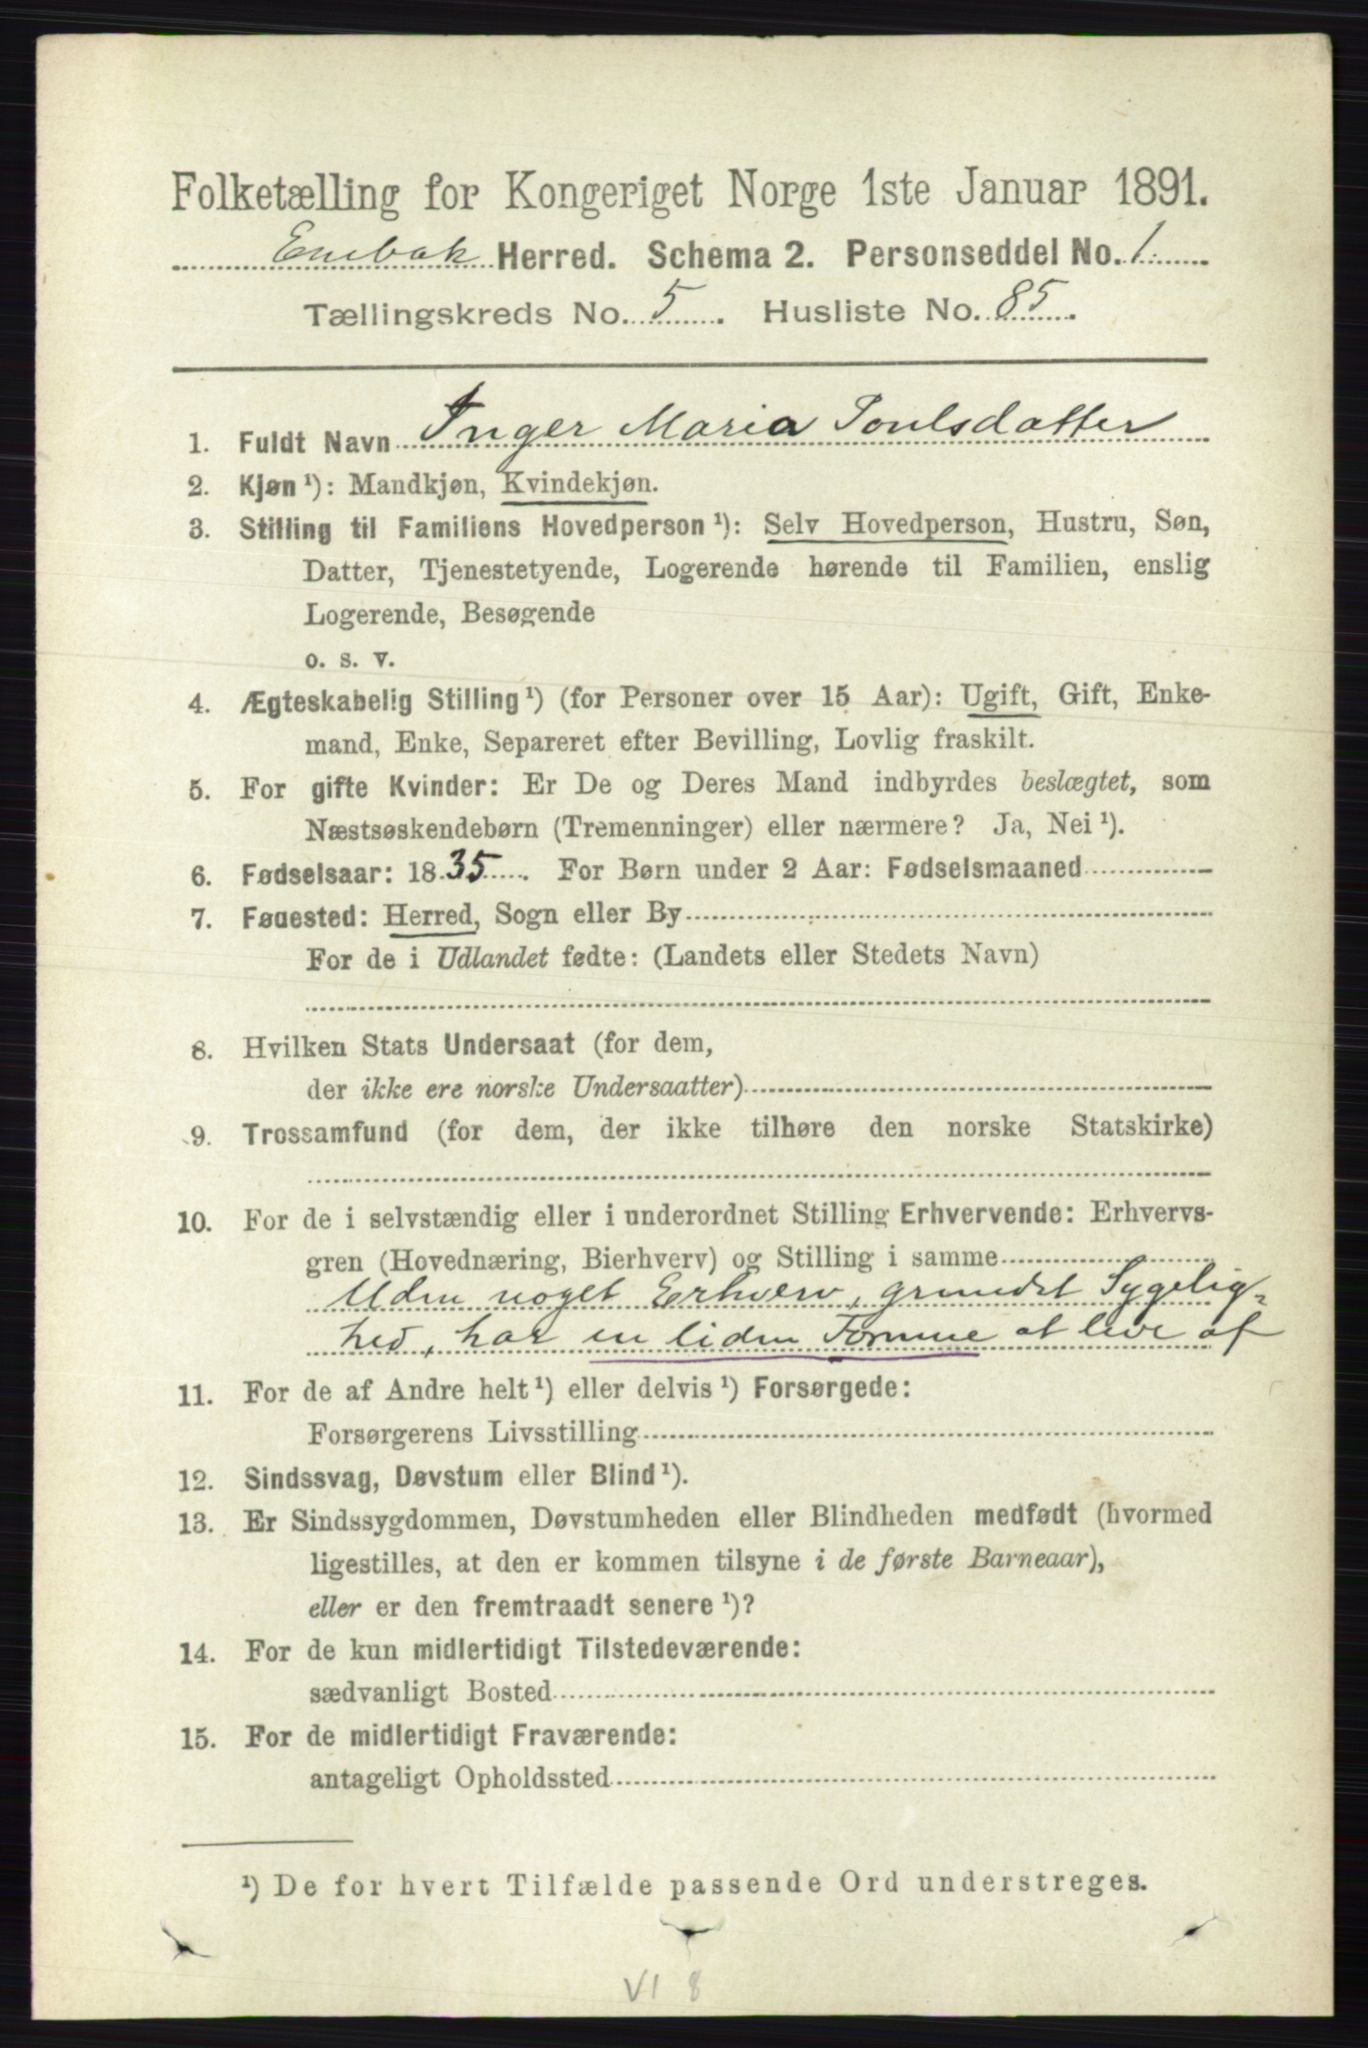 Folketælling for Kongeriget Norge 1ste Januar 1891.
Enebak Herred. Schema 2. Personseddel No. 1
Tællingskreds No. 5. Husliste No. 85.
1. Fuldt Navn Inger Maria Poulsdatter
2. Kjøn ¹): Mandkjøn, Kvindekjøn.
3. Stilling til Familiens Hovedperson ¹): Selv Hovedperson, Hustru, Søn,
Datter, Tjenestetyende, Logerende hørende til Familien, enslig
Logerende, Besøgende
o. s. v.
4. Ægteskabelig Stilling ¹) (for Personer over 15 Aar): Ugift, Gift, Enke-
mand, Enke, Separeret efter Bevilling, Lovlig fraskilt.
5. For gifte Kvinder: Er De og Deres Mand indbyrdes beslægtet, som
Næstsøskendebørn (Tremenninger) eller nærmere? Ja, Nei ¹).
6. Fødselsaar: 1835. For Børn under 2 Aar: Fødselsmaaned
7. Fødested: Herred, Sogn eller By
For de i Udlandet fødte: (Landets eller Stedets Navn)
8. Hvilken Stats Undersaat (for dem,
der ikke ere norske Undersaatter)
9. Trossamfund (for dem, der ikke tilhøre den norske Statskirke)
10. For de i selvstændig eller i underordnet Stilling Erhvervende: Erhvervs-
gren (Hovednæring, Bierhverv) og Stilling i samme
Uden noget Erhverv, grundet Sygelig=
hed, har en liden Formue at leve af
11. For de af Andre helt ¹) eller delvis ¹) Forsørgede:
Forsørgerens Livsstilling
12. Sindssvag, Døvstum eller Blind ¹).
13. Er Sindssygdommen, Døvstumheden eller Blindheden medfødt (hvormed
ligestilles, at den er kommen tilsyne i de første Barneaar),
eller er den fremtraadt senere ¹)?
14. For de kun midlertidigt Tilstedeværende:
sædvanligt Bosted
15. For de midlertidigt Fraværende:
antageligt Opholdssted
¹) De for hvert Tilfælde passende Ord understreges.
VI 8